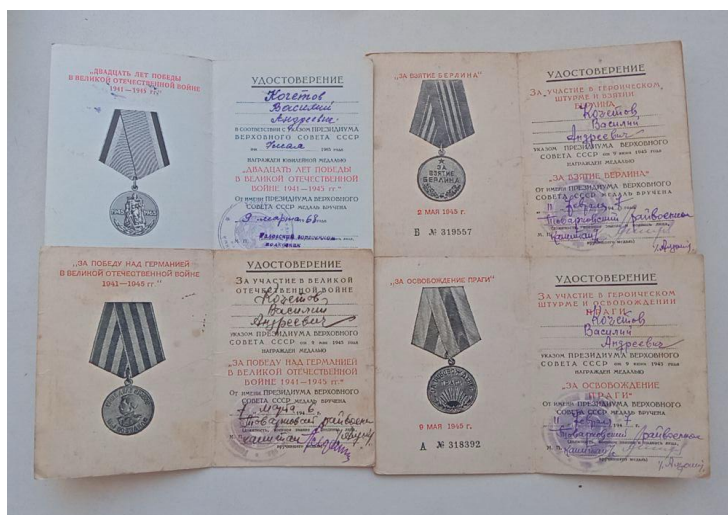 „ДВАДЦАТЬ ЛЕТ ПОБЕДЫ
В ВЕЛИКОЙ ОТЕЧЕСТВЕННОЙ ВОЙНЕ
1941—1945 гг."
УДОСТОВЕРЕНИЕ
Кочетов
Василий
Андреевич
В СООТВЕТСТВИИ С УКАЗОМ ПРЕЗИДИУМА
ВЕРХОВНОГО СОВЕТА СССР
от 7 мая 1965 года
НАГРАЖДЕН ЮБИЛЕЙНОЙ МЕДАЛЬЮ
„ДВАДЦАТЬ ЛЕТ ПОБЕДЫ
В ВЕЛИКОЙ ОТЕЧЕСТВЕННОЙ
ВОЙНЕ 1941—1945 гг."
От имени ПРЕЗИДИУМА ВЕРХОВНОГО
СОВЕТА СССР МЕДАЛЬ ВРУЧЕНА
9 марта 68
„ЗА ВЗЯТИЕ БЕРЛИНА"
ЗА
ВЗЯТИЕ
БЕРЛИНА
2 МАЯ 1945 г.
Б № 319557
УДОСТОВЕРЕНИЕ
ЗА УЧАСТИЕ В ГЕРОИЧЕСКОМ
ШТУРМЕ И ВЗЯТИИ
БЕРЛИНА
Кочетов
Василий
Андреевич
УКАЗОМ ПРЕЗИДИУМА ВЕРХОВНОГО
СОВЕТА СССР от 9 июня 1945 года
НАГРАЖДЕН МЕДАЛЬЮ
„ЗА ВЗЯТИЕ БЕРЛИНА"
От имени ПРЕЗИДИУМА ВЕРХОВНОГО
СОВЕТА СССР МЕДАЛЬ ВРУЧЕНА
11 февраля 7
Товарковский райвоенком
М. П. капитан
„ЗА ПОБЕДУ НАД ГЕРМАНИЕЙ
В ВЕЛИКОЙ ОТЕЧЕСТВЕННОЙ ВОЙНЕ
1941—1945 гг"
УДОСТОВЕРЕНИЕ
ЗА УЧАСТИЕ В ВЕЛИКОЙ
ОТЕЧЕСТВЕННОЙ ВОЙНЕ
Кочетов
Василий
Андреевич
УКАЗОМ ПРЕЗИДИУМА ВЕРХОВНОГО
СОВЕТА СССР от 9 мая 1945 года
НАГРАЖДЕН МЕДАЛЬЮ
„ЗА ПОБЕДУ НАД ГЕРМАНИЕЙ
В ВЕЛИКОЙ ОТЕЧЕСТВЕННОЙ
ВОЙНЕ 1941—1945 гг."
От имени ПРЕЗИДИУМА ВЕРХОВНОГО
СОВЕТА СССР МЕДАЛЬ ВРУЧЕНА
7 марта 6
Товарковский райвоенком
капитан
„ЗА ОСВОБОЖДЕНИЕ ПРАГИ"
9 МАЯ 1945 г.
А № 318392
УДОСТОВЕРЕНИЕ
ЗА УЧАСТИЕ В ГЕРОИЧЕСКОМ
ШТУРМЕ И ОСВОБОЖДЕНИИ
ПРАГИ
Кочетов
Василий
Андреевич
УКАЗОМ ПРЕЗИДИУМА ВЕРХОВНОГО
СОВЕТА СССР от 9 июня 1945 года
НАГРАЖДЕН МЕДАЛЬЮ
„ЗА ОСВОБОЖДЕНИЕ
ПРАГИ"
От имени ПРЕЗИДИУМА ВЕРХОВНОГО
СОВЕТА СССР МЕДАЛЬ ВРУЧЕНА
11 февраля 7
Товарковский райвоенком
М. П. капитан